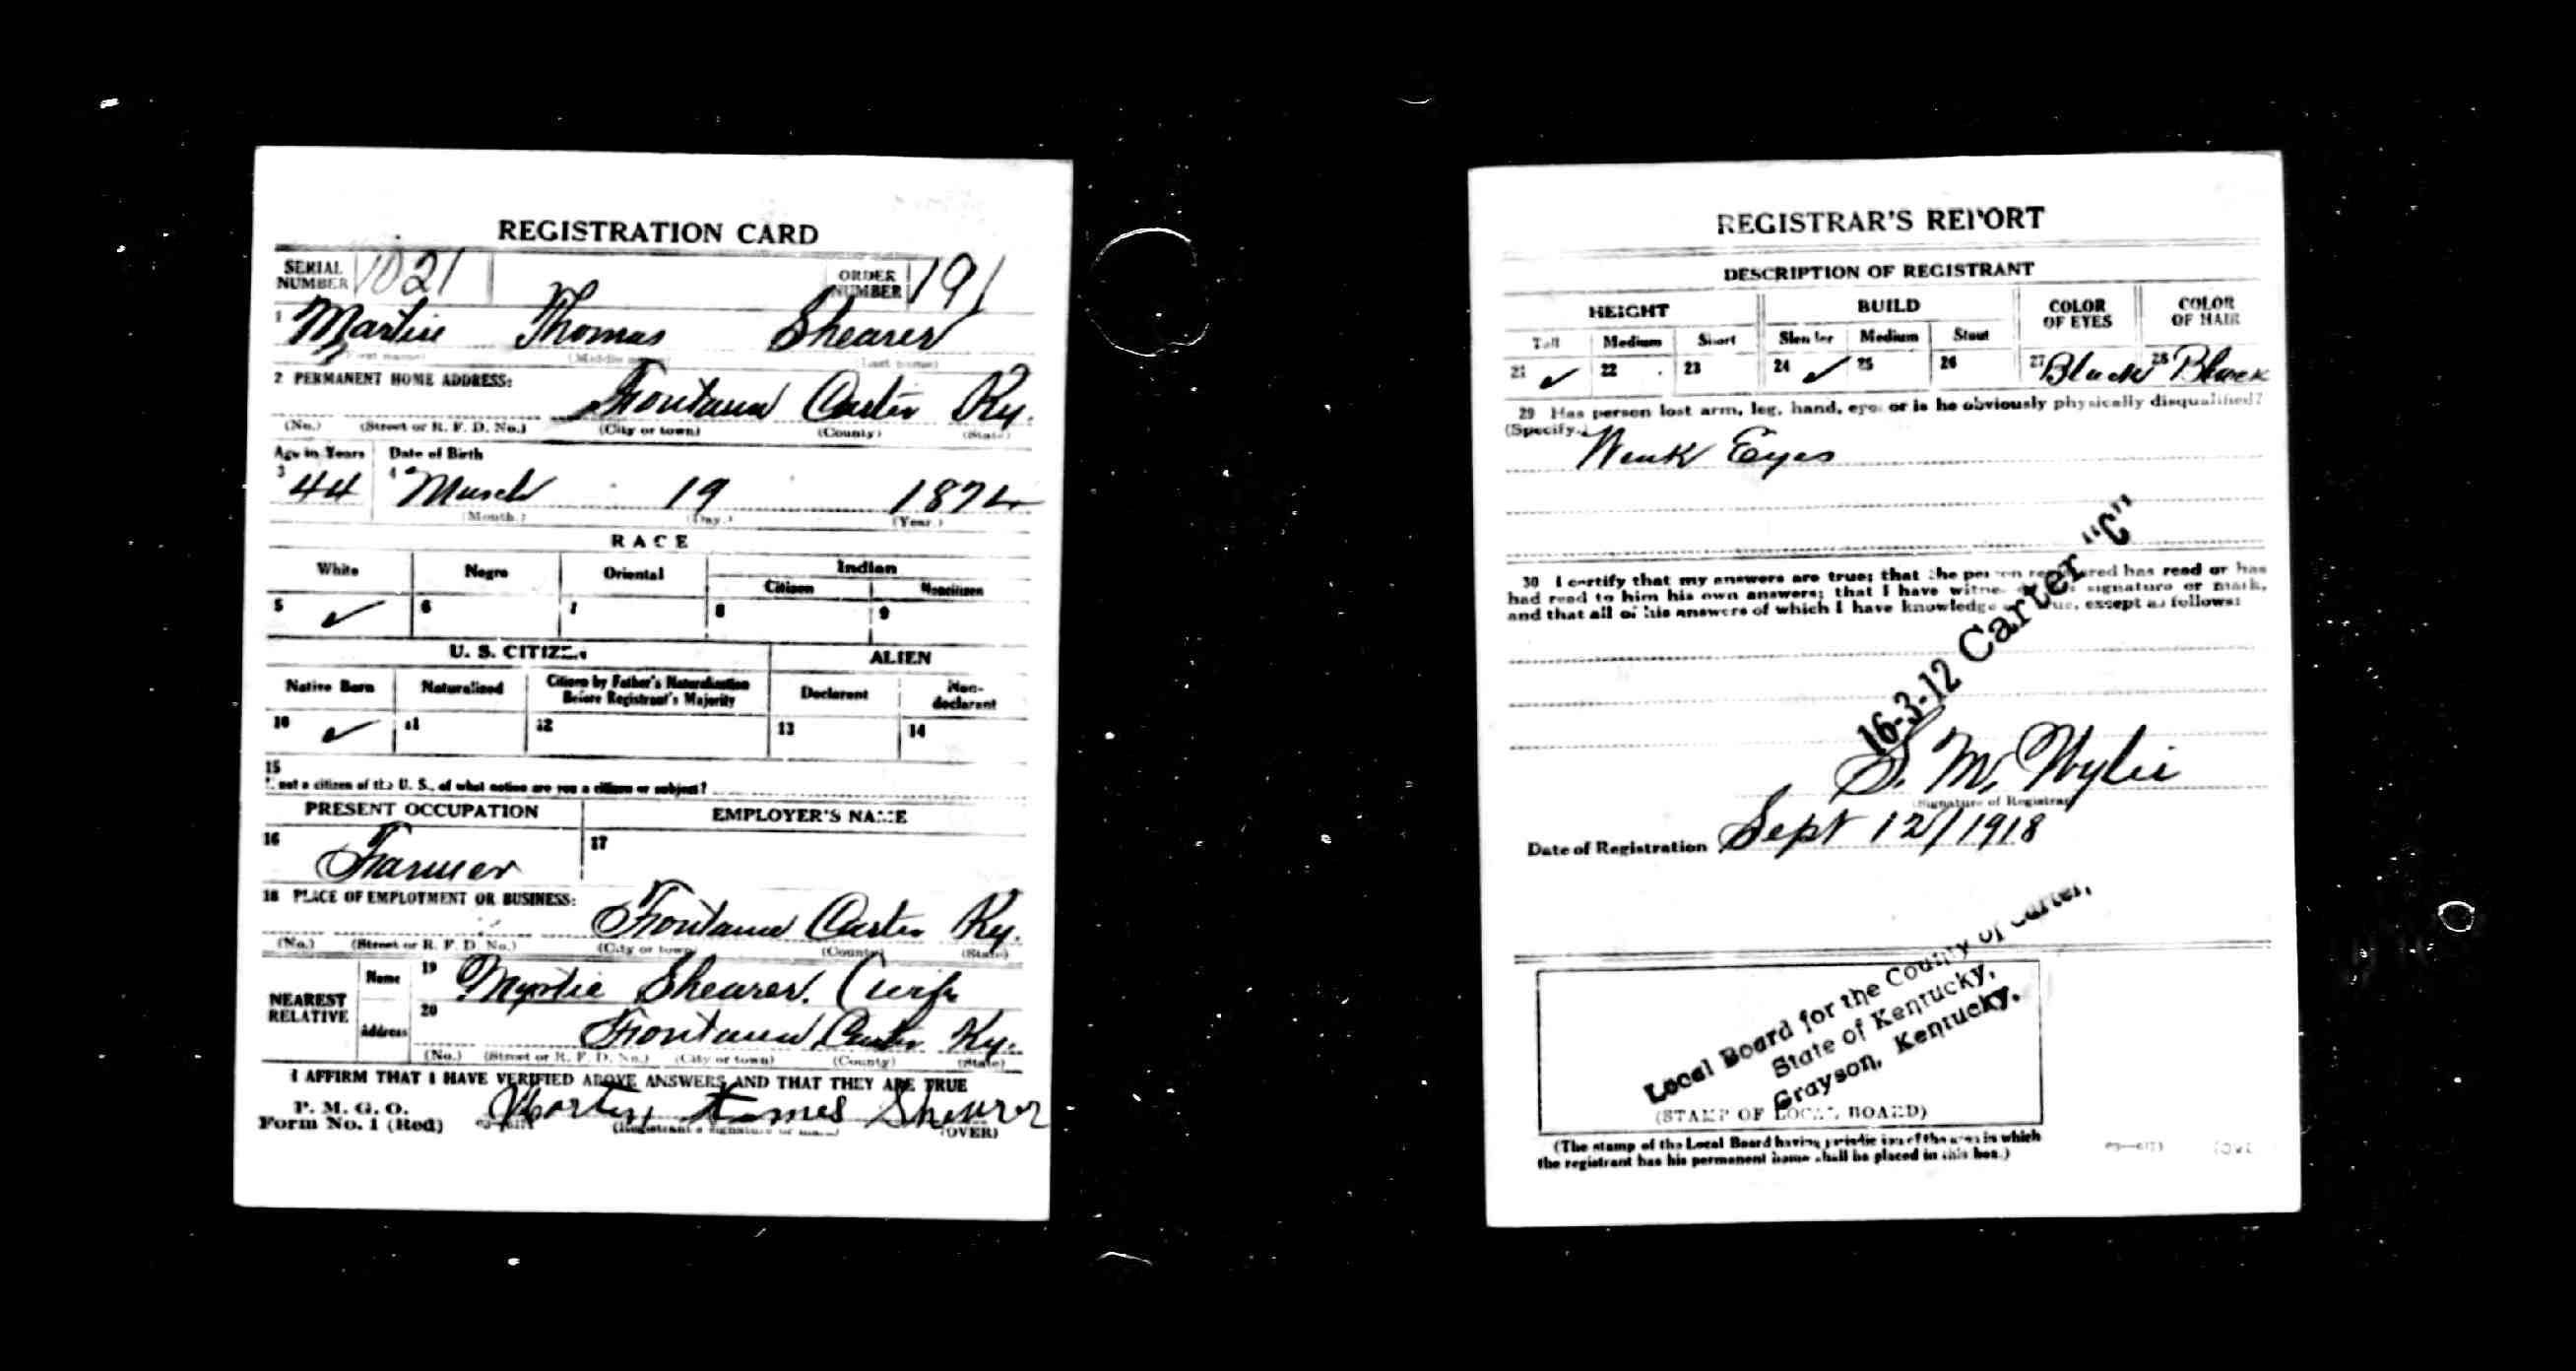 REGISTRATION CARD
SERIAL NUMBER 1021 ORDER NUMBER 191
1 Martin Thomas Shearer
(First name) (Middle name) (Last name)
2 PERMANENT HOME ADDRESS:
Fontana Carter Ky.
(No.) (Street or R. F. D. No.) (City or town) (County) (State)
Age in Years Date of Birth
3 44 4 March 19 1874
(Month.) (Day.) (Year.)
RACE
White Negro Oriental Indian
Citizen Noncitizen
5 ✓ 6 7 8 9
U. S. CITIZEN ALIEN
Native Born Naturalized Citizen by Father's Naturalization Before Registrant's Majority Declarant Non-declarant
10 ✓ 11 12 13 14
15
If not a citizen of the U. S., of what nation are you a citizen or subject?
PRESENT OCCUPATION EMPLOYER'S NAME
16 Farmer 17
18 PLACE OF EMPLOYMENT OR BUSINESS:
Fontana Carter Ky.
(No.) (Street or R. F. D. No.) (City or town) (County) (State)
NEAREST RELATIVE Name 19 Myrtie Shearer. (wife
Address 20 Fontana Carter Ky.
(No.) (Street or R. F. D. No.) (City or town) (County) (State)
I AFFIRM THAT I HAVE VERIFIED ABOVE ANSWERS AND THAT THEY ARE TRUE
P. M. G. O.
Form No. 1 (Red) Martin tomes Shearer
(Registrant's signature or mark) (OVER)
REGISTRAR'S REPORT
DESCRIPTION OF REGISTRANT
HEIGHT BUILD COLOR OF EYES COLOR OF HAIR
Tall Medium Short Slender Medium Stout
21 ✓ 22 23 24 ✓ 25 26 27 Black 28 Black
29 Has person lost arm, leg, hand, eye, or is he obviously physically disqualified?
(Specify.) Weak Eyes
30 I certify that my answers are true; that the person registered has read or has
had read to him his own answers; that I have witnessed his signature or mark,
and that all of his answers of which I have knowledge are true, except as follows:
16-3-12 Carter "C"
S. M. Wylie
(Signature of Registrar)
Date of Registration Sept 12/1918
Local Board for the County of Carter,
State of Kentucky,
Grayson, Kentucky.
(STAMP OF LOCAL BOARD)
(The stamp of the Local Board having jurisdiction of the area in which
the registrant has his permanent home shall be placed in this box.)
(OVER)